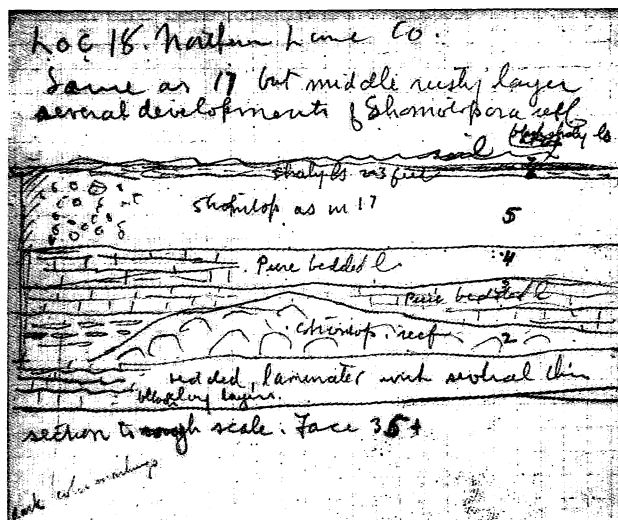 Loc 18. Northern Lime Co.
Same as 17 but middle rusty layer
several developments of Stromatopora reef
soil
black shaly ls
shaly ls 2-3 feet
Stromtop as in 17
5
Pure bedded l.
4
3
Pure bedded l
Stromtop. reef
2
bedded, laminated with several thin
layers.
section to rough scale. Face 35+
dark